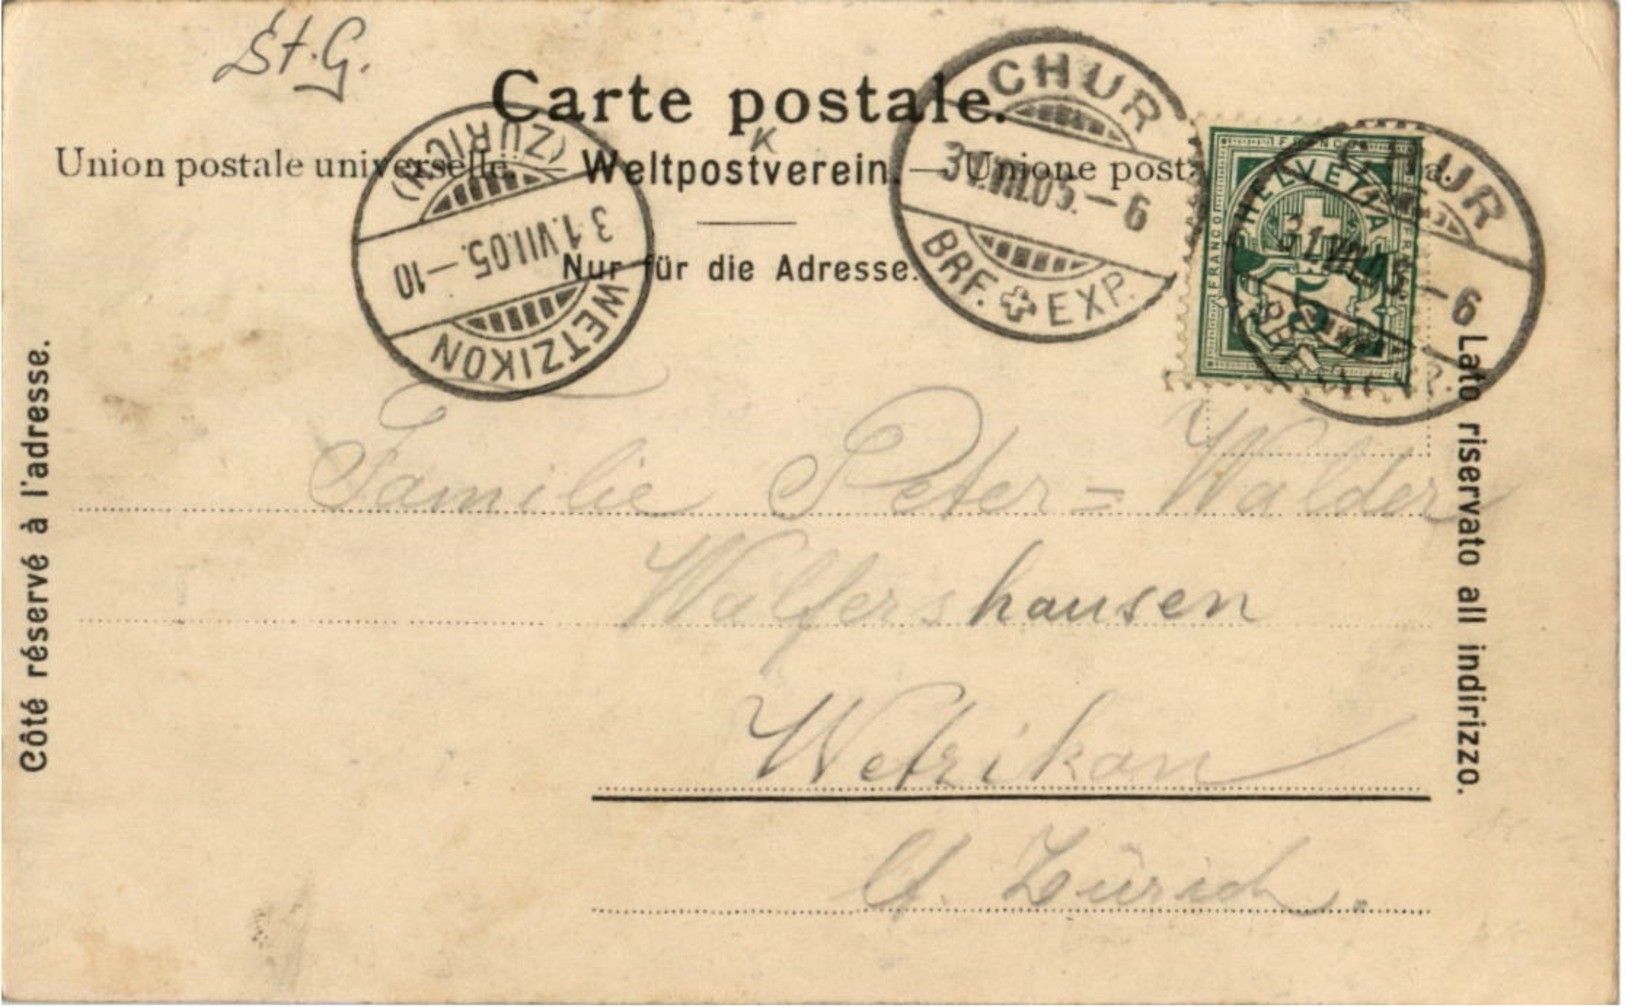 St. G.
Carte postale.
K
Union postale universelle. Weltpostverein. — Unione post
Nur für die Adresse.
(ZÜRICH)
31.VII.05.–10
WETZIKON
CHUR
31.VII.05.–6
BRF. EXP.
FRANCO
HELVETIA
FRANCO
5
CHUR
31.VII.05–6
Côté réservé à l'adresse.
Lato riservato all indirizzo.
Familie Peter=Walder
Walfershausen
Wetzikon
Ct. Zürich.